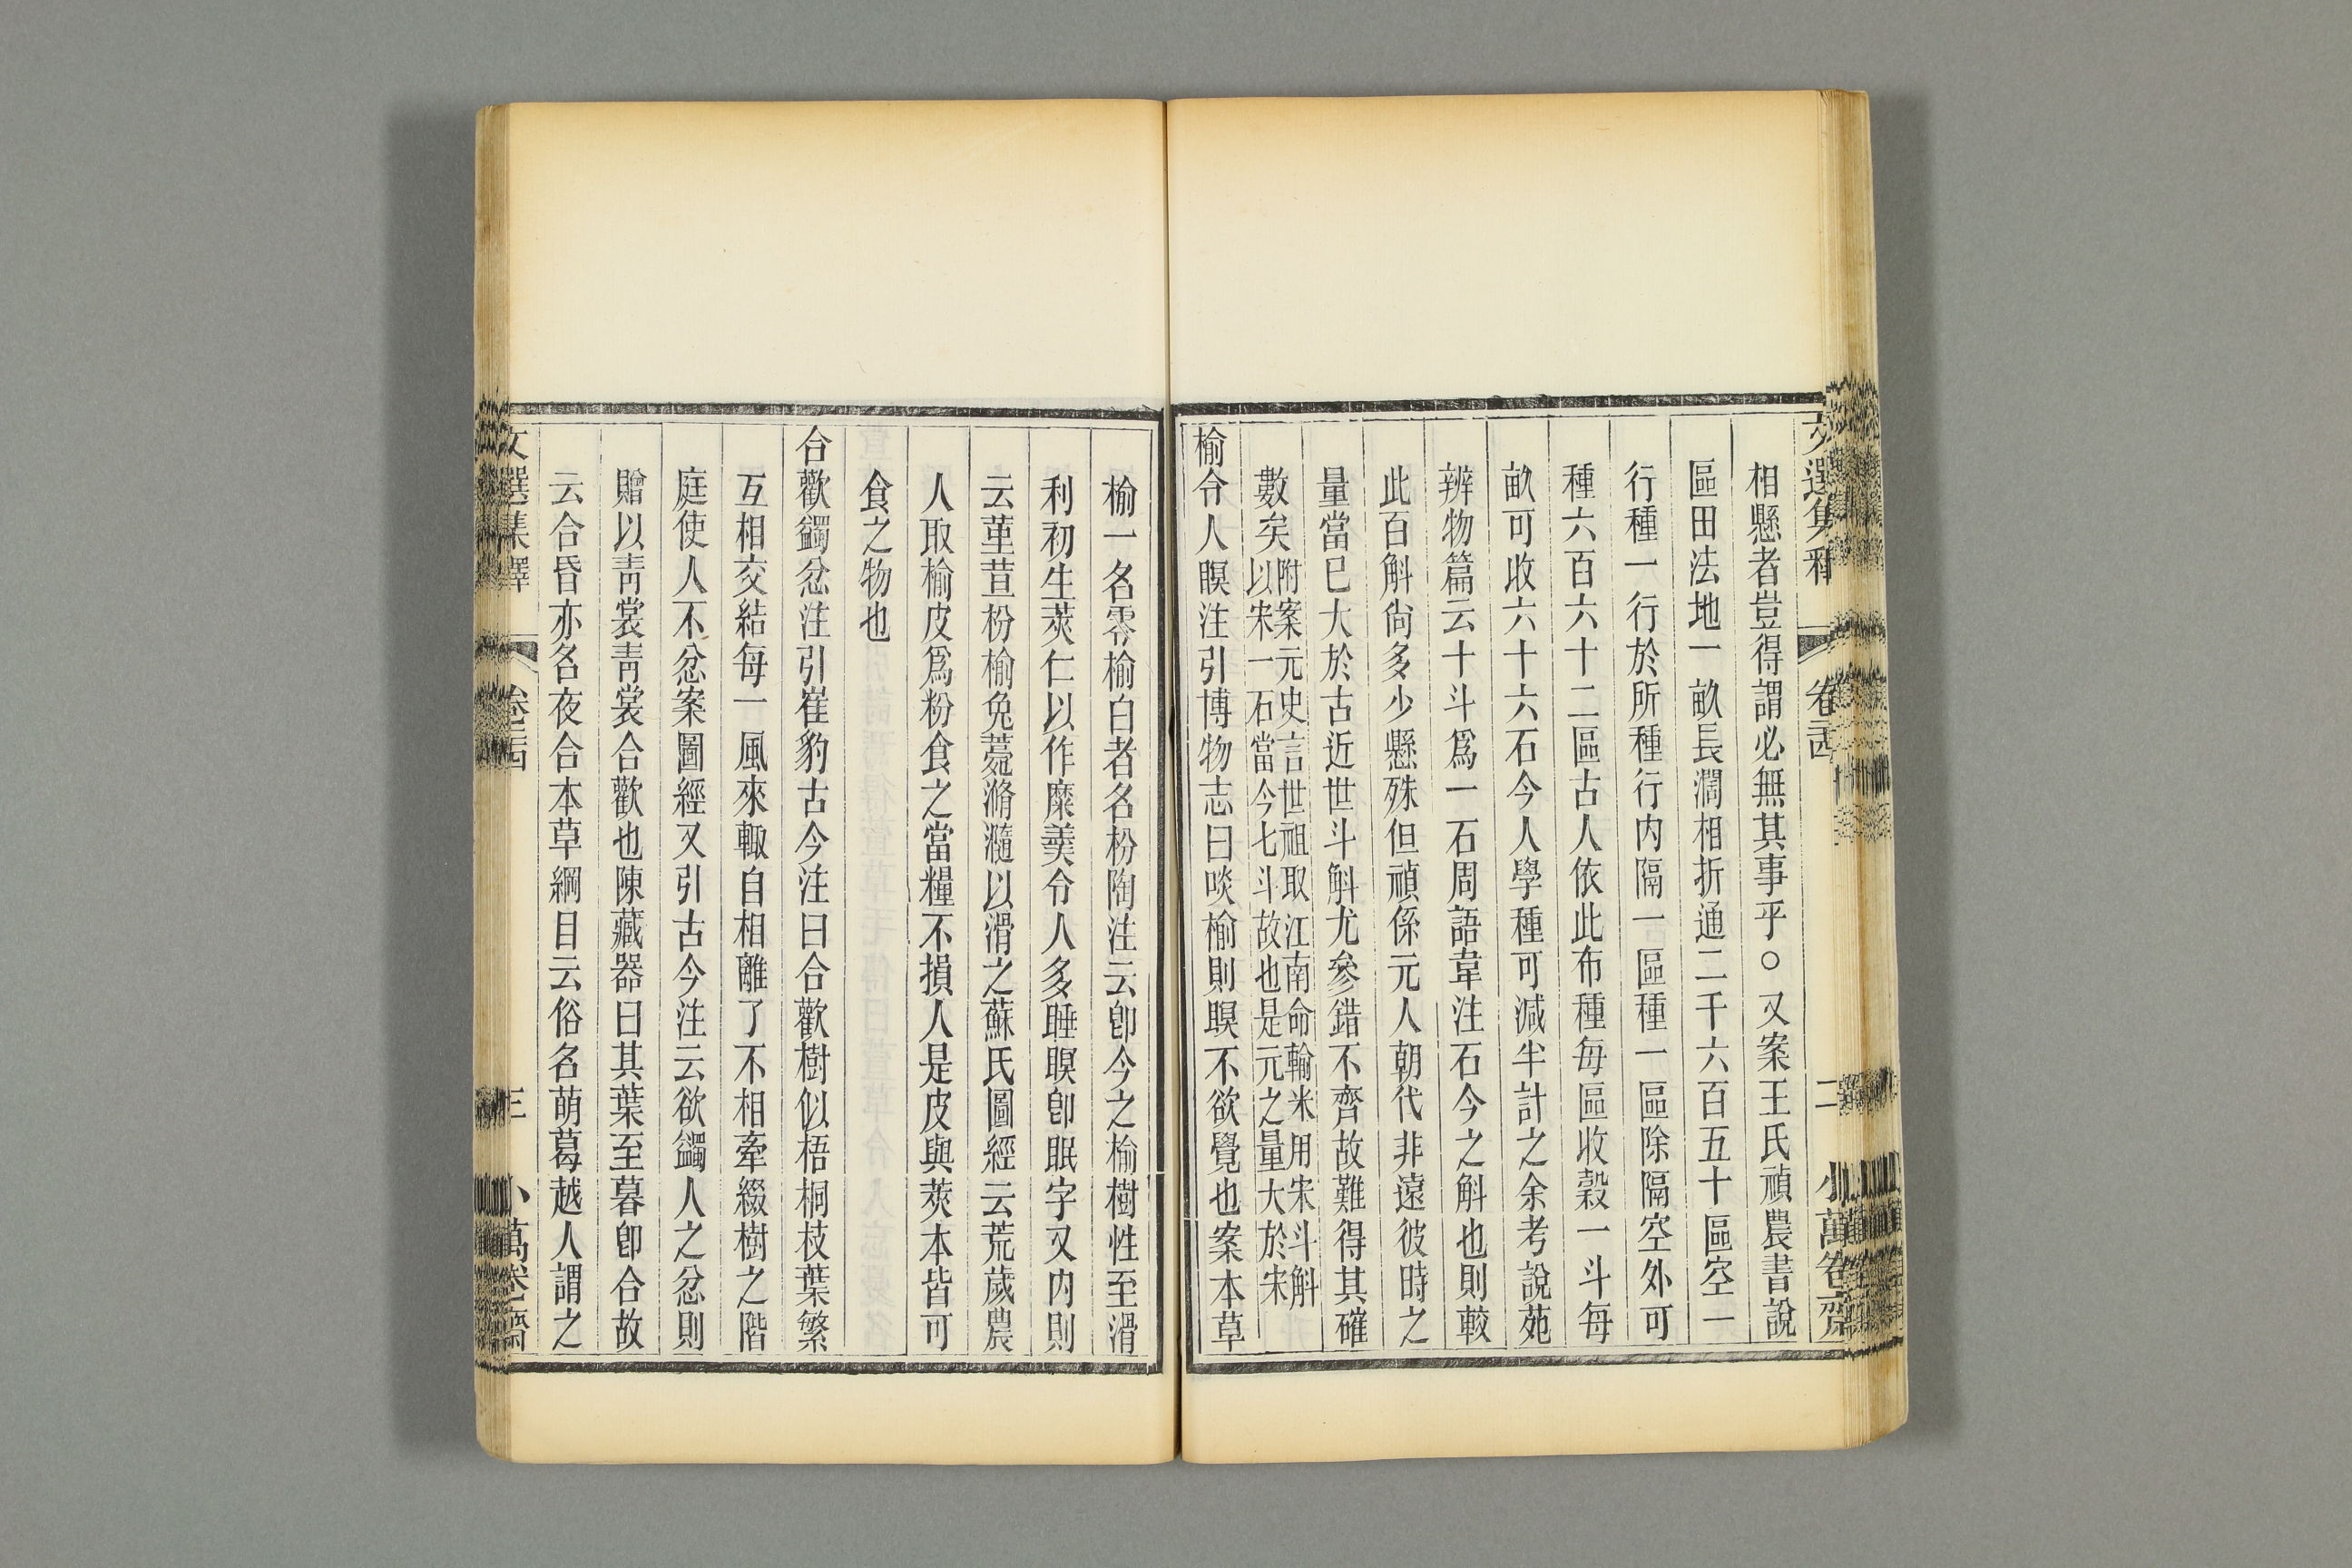 文選集釋 卷二十四 二 小萬卷齋
相懸者豈得謂必無其事乎○又案王氏禎農書說
區田法地一畝長濶相折通二千六百五十區空一
行種一行於所種行內隔一區種一區除隔空外可
種六百六十二區古人依此布種每區收穀一斗每
畝可收六十六石今人學種可減半計之余考說苑
辨物篇云十斗爲一石周語韋注石今之斛也則較
此百斛尙多少懸殊但禎係元人朝代非遠彼時之
量當已大於古近世斗斛尤參錯不齊故難得其確
數矣附案元史言世祖取江南命輸米用宋斗斛
以宋一石當今七斗故也是元之量大於宋
榆令人瞑注引博物志曰啖榆則瞑不欲覺也案本草
榆一名零榆白者名枌陶注云卽今之榆樹性至滑
利初生莢仁以作糜羹令人多睡瞑卽眠字又內則
云菫荁枌榆免薧滫瀡以滑之蘇氏圖經云荒歲農
人取榆皮爲粉食之當糧不損人是皮與莢本皆可
食之物也
合歡蠲忿注引崔豹古今注曰合歡樹似梧桐枝葉繁
互相交結每一風來輙自相離了不相牽綴樹之階
庭使人不忿案圖經又引古今注云欲蠲人之忿則
贈以靑裳靑裳合歡也陳藏器曰其葉至暮卽合故
云合昏亦名夜合本草綱目云俗名萌葛越人謂之
文選集釋 卷二十四 三 小萬卷齋